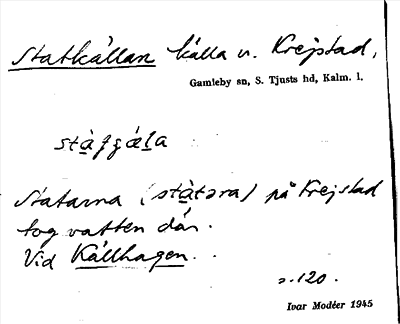 Statkällan källa v. Krejstad,
Gamleby sn, S. Tjusts hd, Kalm. l.
Statarna (stàtəra) på Krejstad
tog vatten där.
Vid Källhagen.
s. 120.
Ivar Modéer 1945